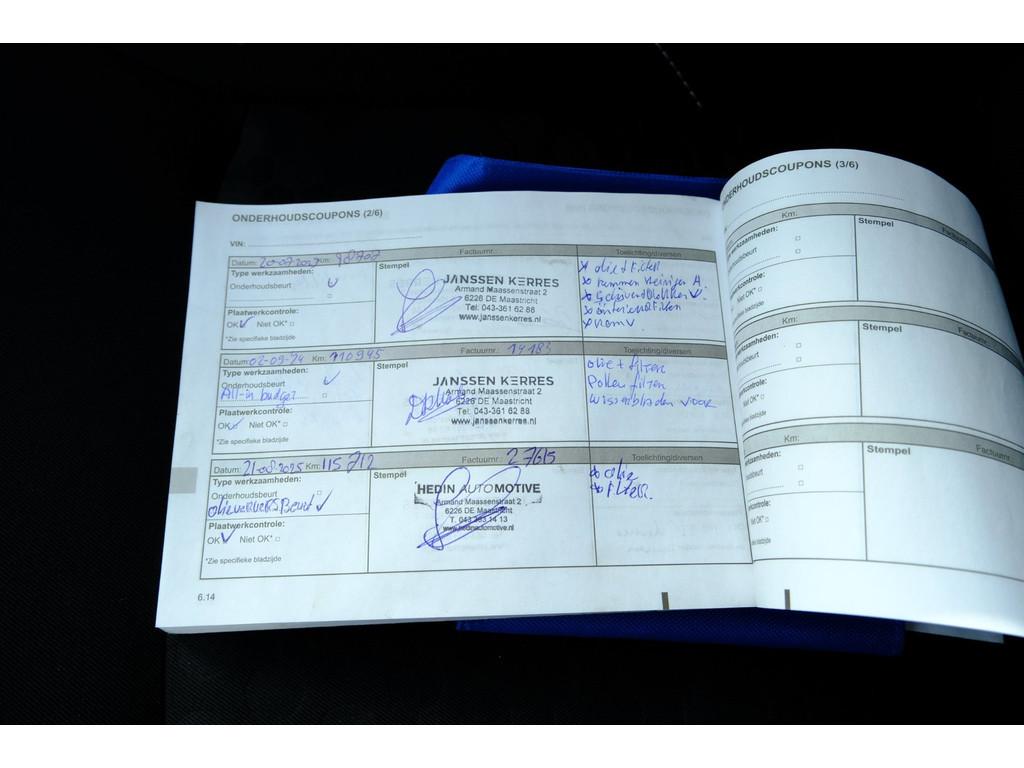 ONDERHOUDSCOUPONS (2/6)
VIN:
Datum: Km: Factuurnr.: Toelichting/diversen
Type werkzaamheden:
Onderhoudsbeurt
Plaatwerkcontrole:
OK Niet OK*
*Zie specifieke bladzijde
Stempel
JANSSEN KERRES
Armand Maassenstraat 2
6226 DE Maastricht
Tel: 043-361 62 88
www.janssenkerres.nl
olie + filter
remmen reinigen
Datum: 02-09-24 Km: 110945 Factuurnr.: 14183 Toelichting/diversen
Type werkzaamheden:
Onderhoudsbeurt
All-in budget
Plaatwerkcontrole:
OK Niet OK*
*Zie specifieke bladzijde
Stempel
JANSSEN KERRES
Armand Maassenstraat 2
6226 DE Maastricht
Tel: 043-361 62 88
www.janssenkerres.nl
olie + filter
Pollen filter
wisserbladen voor
Datum: 21-08-2025 Km: 115 712 Factuurnr.: 27615 Toelichting/diversen
Type werkzaamheden:
Onderhoudsbeurt
olieverversBeurt
Plaatwerkcontrole:
OK Niet OK*
*Zie specifieke bladzijde
Stempel
HEDIN AUTOMOTIVE
Armand Maassenstraat 2
6226 DE Maastricht
www.hedinautomotive.nl
olie
Filter.
6.14
ERHOUDSCOUPONS (3/6)
Km: Factuurnr.
werkzaamheden:
Stempel
Niet OK*
Km: Factuurnr.
Stempel
Niet OK*
Km: Factuurnr.
Stempel
Niet OK*